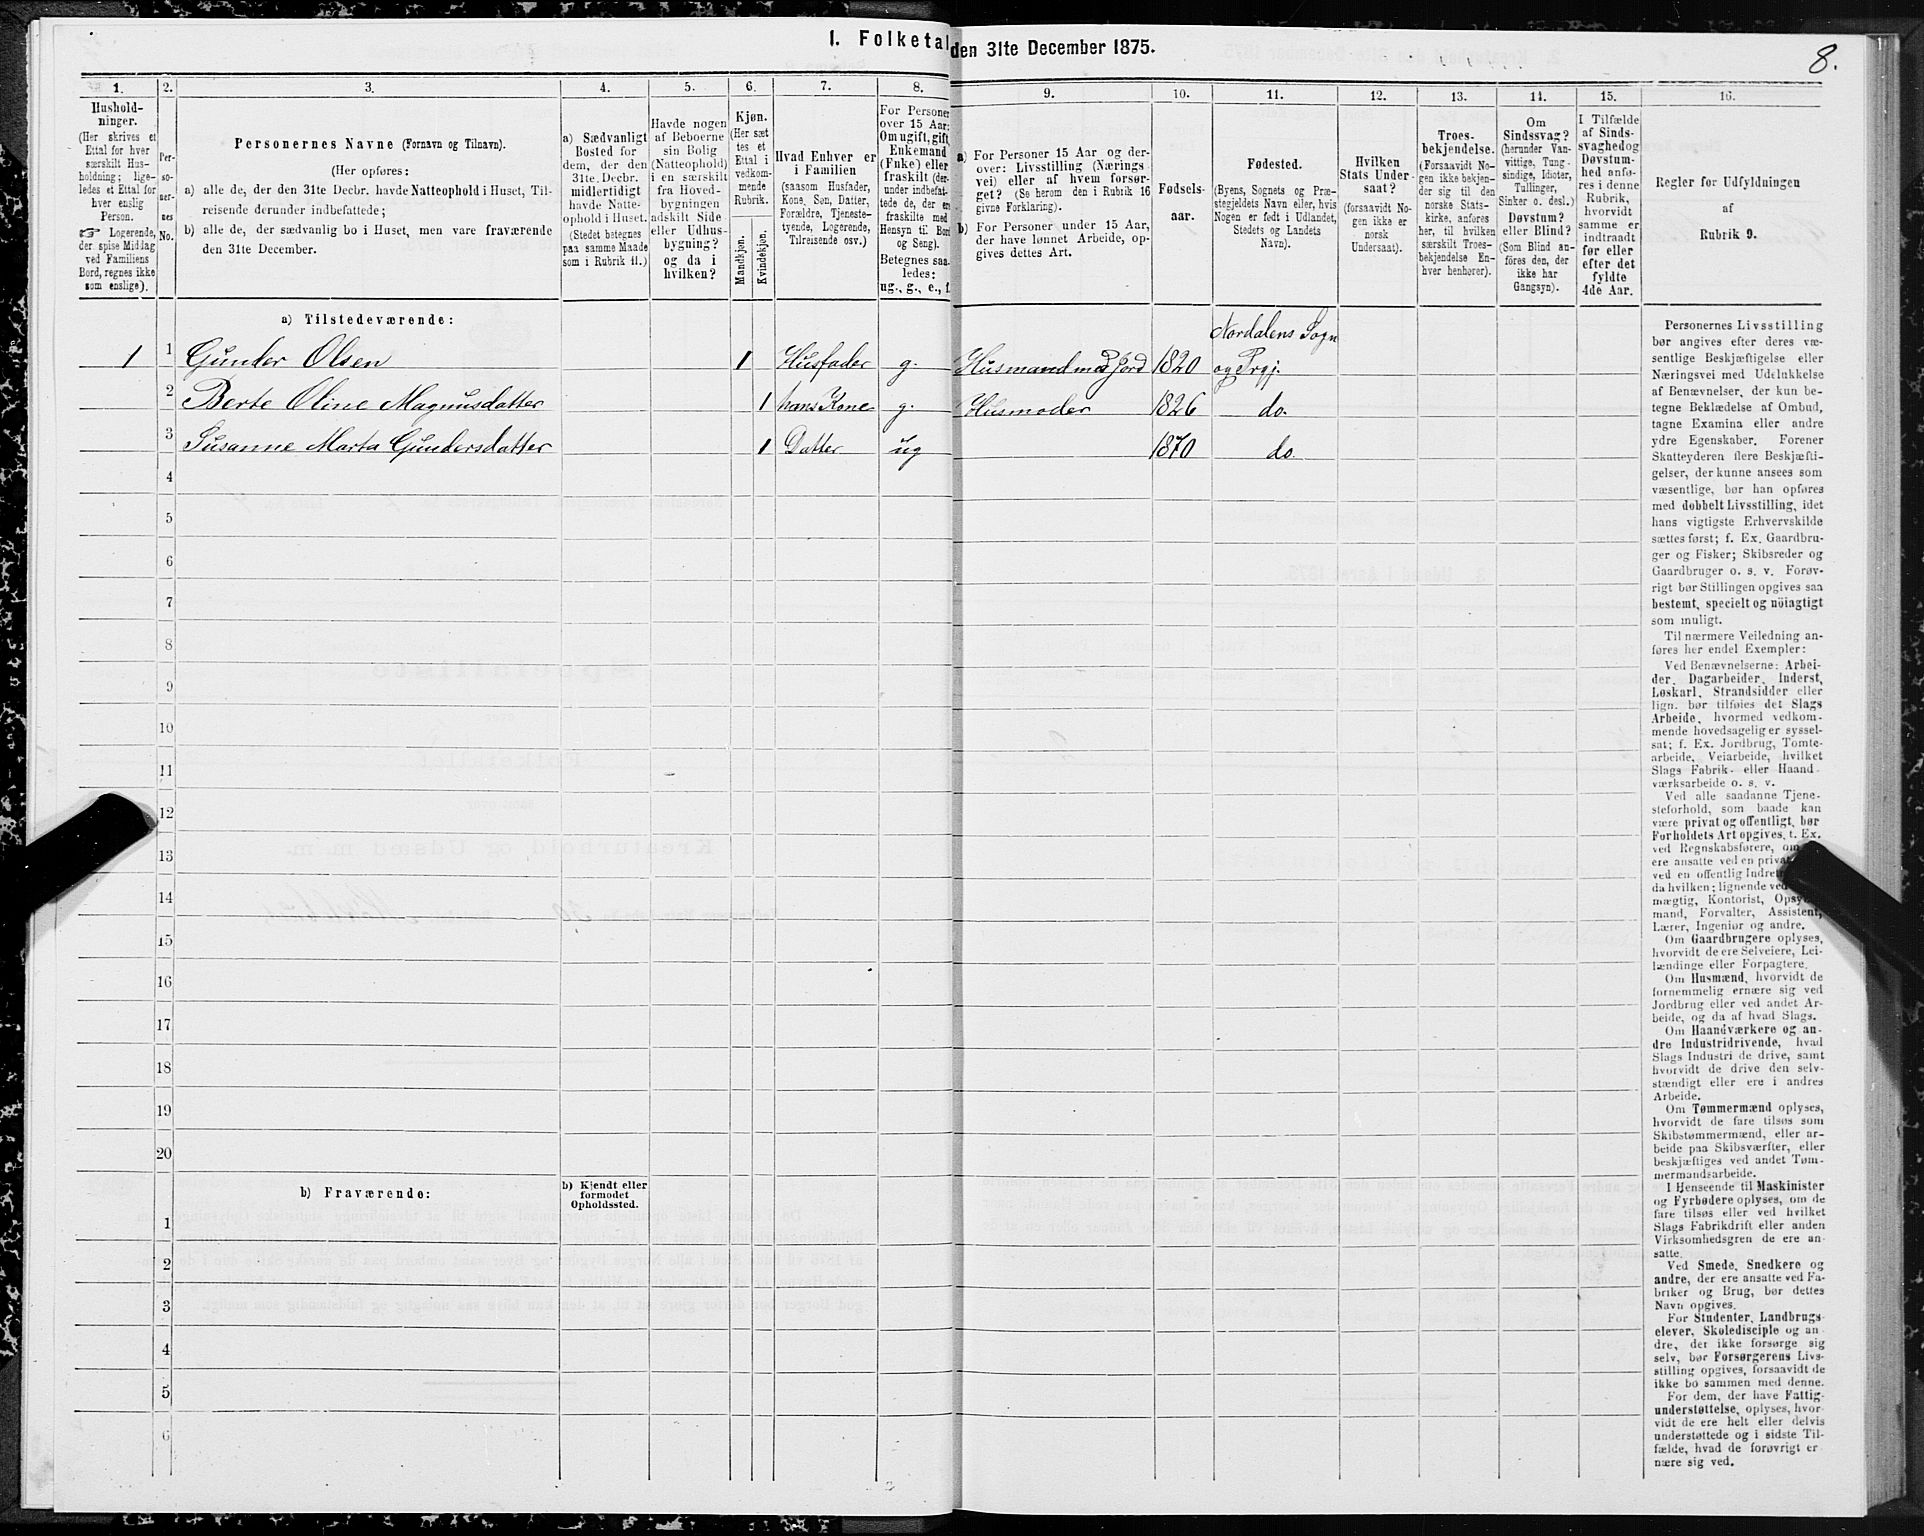 I. Folketal den 31te December 1875.
8.
1.
2.
3.
4.
5.
6.
7.
8.
9.
10.
11.
12.
13.
14.
15.
16.
Hushold-
ninger.
(Her skrives et
Ettal for hver
særskilt Hus-
holdning; lige-
ledes et Ettal for
hver enslig
Person.
☞ Logerende,
der spise Middag
ved Familiens
Bord, regnes ikke
som enslige).
Per-
so-
ner-
nes
No.
Personernes Navne (Fornavn og Tilnavn).
(Her opføres:
a) alle de, der den 31te Decbr. havde Natteophold i Huset, Til-
reisende derunder indbefattede;
b) alle de, der sædvanlig bo i Huset, men vare fraværende
den 31te December.
a) Sædvanligt
Bosted for
dem, der den
31te Decbr.
midlertidigt
havde Natte-
ophold i Huset.
(Stedet betegnes
paa samme Maade
som i Rubrik 11.)
Havde nogen
af Beboerne
sin Bolig
(Natteophold)
i en særskilt
fra Hoved-
bygningen
adskilt Side
eller Udhus-
bygning?
og da i
hvilken?
Kjøn.
(Her sæt
tes et
Ettal i
vedkom-
mende
Rubrik.
Mandkjøn.
Kvindekjøn.
Hvad Enhver er
i Familien
(saasom Husfader,
Kone, Søn, Datter,
Forældre, Tjeneste-
tyende, Logerende,
Tilreisende osv.)
For Personer
over 15 Aar:
Om ugift, gift,
Enkemand
(Enke) eller
fraskilt (der-
under indbefat-
tede de, der ere
fraskilte med
Hensyn til Bord
og Seng).
Betegnes saa-
ledes:
ug., g., e., f.
a) For Personer 15 Aar og der-
over: Livsstilling (Nærings-
vei) eller af hvem forsør-
get? (Se herom den i Rubrik 16
givne Forklaring).
b) For Personer under 15 Aar,
der have lønnet Arbeide, op-
gives dettes Art.
Fødsels-
aar.
Fødested.
(Byens, Sognets og Præ-
stegjeldets Navn eller, hvis
Nogen er født i Udlandet,
Stedets og Landets
Navn).
Hvilken
Stats Under-
saat?
(forsaavidt No-
gen ikke er
norsk
Undersaat).
Troes-
bekjendelse.
(Forsaavidt No-
gen ikke bekjen-
der sig til den
norske Stats-
kirke, anføres
her, til hvilken
særskilt Troes-
bekjendelse En-
hver henhører).
Om
Sindssvag?
(herunder Van-
vittige, Tung-
sindige, Idioter,
Tullinger,
Sinker o. desl.)
Døvstum?
eller Blind?
(Som Blind an-
føres den, der
ikke har
Gangsyn).
I Tilfælde
af Sinds-
svaghed og
Døvstum-
hed anfø-
res i denne
Rubrik,
hvorvidt
samme er
indtraadt
før eller
efter det
fyldte
4de Aar.
Regler for Udfyldningen
af
Rubrik 9.
a) Tilstedeværende:
Nordalens Sogn
1 1 Gunder Olsen 1 Husfader g. Husmand med Jord 1820 og Prgj.
2 Berte Oline Magnusdatter 1 hans Kone g. Husmoder 1826 do.
3 Susanne Marta Gundersdatter 1 Datter ug 1870 do.
4
5
6
7
8
9
10
11
12
13
14
15
16
17
18
19
20
b) Fraværende:
b) Kjendt eller
formodet
Opholdssted.
1
2
3
4
5
6
Personernes Livsstilling
bør angives efter deres væ-
sentlige Beskjæftigelse eller
Næringsvei med Udelukkelse
af Benævnelser, der kun be-
tegne Beklædelse af Ombud,
tagne Examina eller andre
ydre Egenskaber. Forener
Skatteyderen flere Beskjæfti-
gelser, der kunne ansees som
væsentlige, bør han opføres
med dobbelt Livsstilling, idet
hans vigtigste Erhvervskilde
sættes først; f. Ex. Gaardbru-
ger og Fisker; Skibsreder og
Gaardbruger o. s. v. Forøv-
rigt bør Stillingen opgives saa
bestemt, specielt og nöiagtigt
som muligt.
Til nærmere Veiledning an-
føres her endel Exempler:
Ved Benævnelserne: Arbei-
der, Dagarbeider, Inderst,
Løskarl, Strandsidder eller
lign. bør tilføies det Slags
Arbeide, hvormed vedkom-
mende hovedsagelig er syssel-
sat; f. Ex. Jordbrug, Tomte-
arbeide, Veiarbeide, hvilket
Slags Fabrik- eller Haand-
værksarbeide o. s. v.
Ved alle saadanne Tjene-
steforhold, som baade kan
være privat og offentligt, bør
Forholdets Art opgives, t. Ex.
ved Regnskabsførere, om
ere ansatte ved en privat
ved en offentlig Indret
da hvilken; lignende ved
mægtig, Kontorist, Opsy
mand, Forvalter, Assistent,
Lærer, Ingeniør og andre.
Om Gaardbrugere oplyses,
hvorvidt de ere Selveiere, Lei-
lændinge eller Forpagtere.
Om Husmænd, hvorvidt de
fornemmelig ernære sig ved
Jordbrug eller ved andet Ar-
beide, og da af hvad Slags.
Om Haandværkere og an-
dre Industridrivende, hvad
Slags Industri de drive, samt
hvorvidt de drive den selv-
stændigt eller ere i andres
Arbeide.
Om Tømmermænd oplyses,
hvorvidt de fare tilsøs som
Skibstømmermænd, eller ar-
beide paa Skibsværfter, eller
beskjæftiges ved andet Tøm-
mermandsarbeide.
I Henseende til Maskinister
og Fyrbødere oplyses, om de
fare tilsøs eller ved hvilket
Slags Fabrikdrift eller anden
Virksomhedsgren de ere an-
satte.
Ved Smede, Snedkere og
andre, der ere ansatte ved Fa-
briker og Brug, bør dettes
Navn opgives.
For Studenter, Landbrugs-
elever, Skoledisciple og an-
dre, der ikke forsørge sig
selv, bør Forsørgerens Livs-
stilling opgives, forsaavidt de
ikke bo sammen med denne.
For dem, der have Fattig-
understøttelse, oplyses, hvor-
vidt de ere helt eller delvis
understøttede og i sidste Til-
fælde, hvad de forøvrigt er-
nære sig ved.